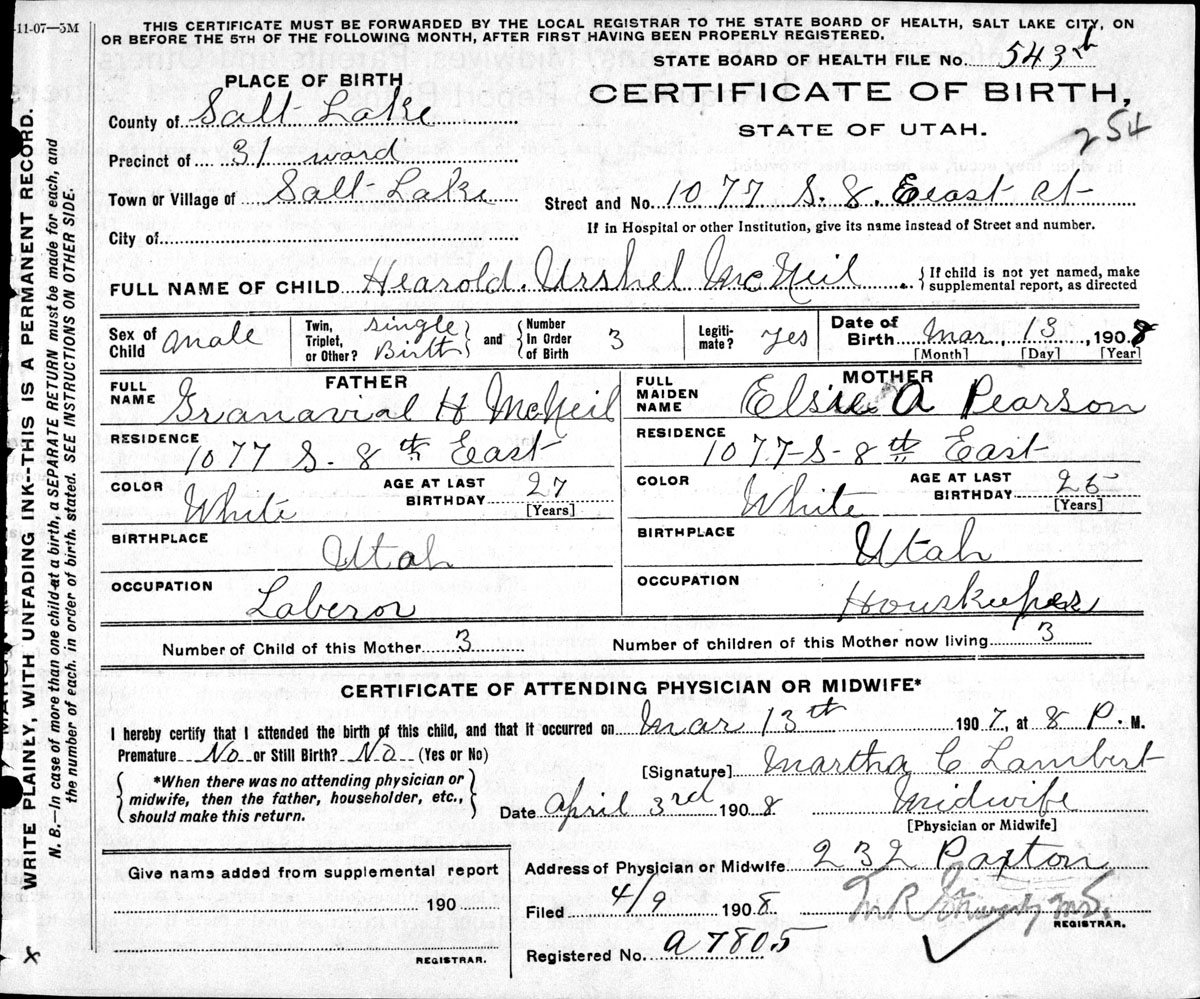 -11-07—5M
THIS CERTIFICATE MUST BE FORWARDED BY THE LOCAL REGISTRAR TO THE STATE BOARD OF HEALTH, SALT LAKE CITY, ON
OR BEFORE THE 5TH OF THE FOLLOWING MONTH, AFTER FIRST HAVING BEEN PROPERLY REGISTERED.
STATE BOARD OF HEALTH FILE No. 543
PLACE OF BIRTH
CERTIFICATE OF BIRTH,
STATE OF UTAH.
254
County of Salt Lake
Precinct of 31 ward
Town or Village of Salt Lake
Street and No. 1077 S. 8. Eeast ct
City of
If in Hospital or other Institution, give its name instead of Street and number.
FULL NAME OF CHILD Hearold. Urshel McNeil
If child is not yet named, make
supplemental report, as directed
Sex of Child male
Twin, Triplet, or Other? Single Birth
and Number In Order of Birth 3
Legiti-mate? Yes
Date of Birth Mar, 13, 1908
[Month] [Day] [Year]
FATHER
FULL NAME Granavial H McNeil
RESIDENCE 1077 S- 8th East
COLOR White AGE AT LAST BIRTHDAY 27 [Years]
BIRTHPLACE Utah
OCCUPATION Laberor
MOTHER
FULL MAIDEN NAME Elsie A Pearson
RESIDENCE 1077-S-8th East
COLOR White AGE AT LAST BIRTHDAY 25 [Years]
BIRTHPLACE Utah
OCCUPATION Houskeeper
Number of Child of this Mother 3 Number of children of this Mother now living 3
CERTIFICATE OF ATTENDING PHYSICIAN OR MIDWIFE*
I hereby certify that I attended the birth of this child, and that it occurred on Mar 13th 1907, at 8 P. M.
Premature No or Still Birth? No (Yes or No)
*When there was no attending physician or
midwife, then the father, householder, etc.,
should make this return.
[Signature] Martha C Lambert
Date April 3rd 1908 Midwife
[Physician or Midwife]
Give name added from supplemental report
190
REGISTRAR.
Address of Physician or Midwife 232 Paxton
Filed 4/9 1908
REGISTRAR.
Registered No. a7805
WRITE PLAINLY, WITH UNFADING INK—THIS IS A PERMANENT RECORD.
N. B.—In case of more than one child at a birth, a SEPARATE RETURN must be made for each, and
the number of each, in order of birth, stated. SEE INSTRUCTIONS ON OTHER SIDE.
x